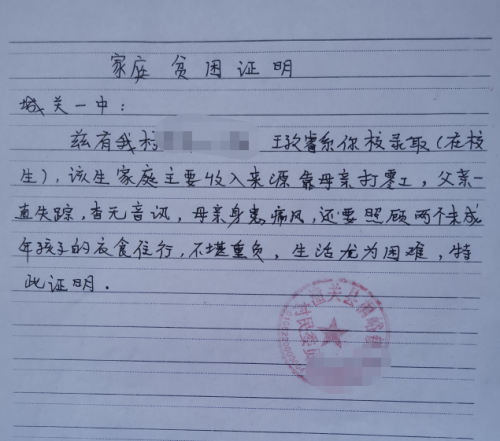 家庭贫困证明
城关一中：
兹有我村 王玫睿系你校录取(在校
生)，该生家庭主要收入来源靠母亲打零工，父亲一
直失踪，杳无音讯，母亲身患痛风，还要照顾两个未成
年孩子的衣食住行，不堪重负，生活尤为困难，特
此证明．
村民委员